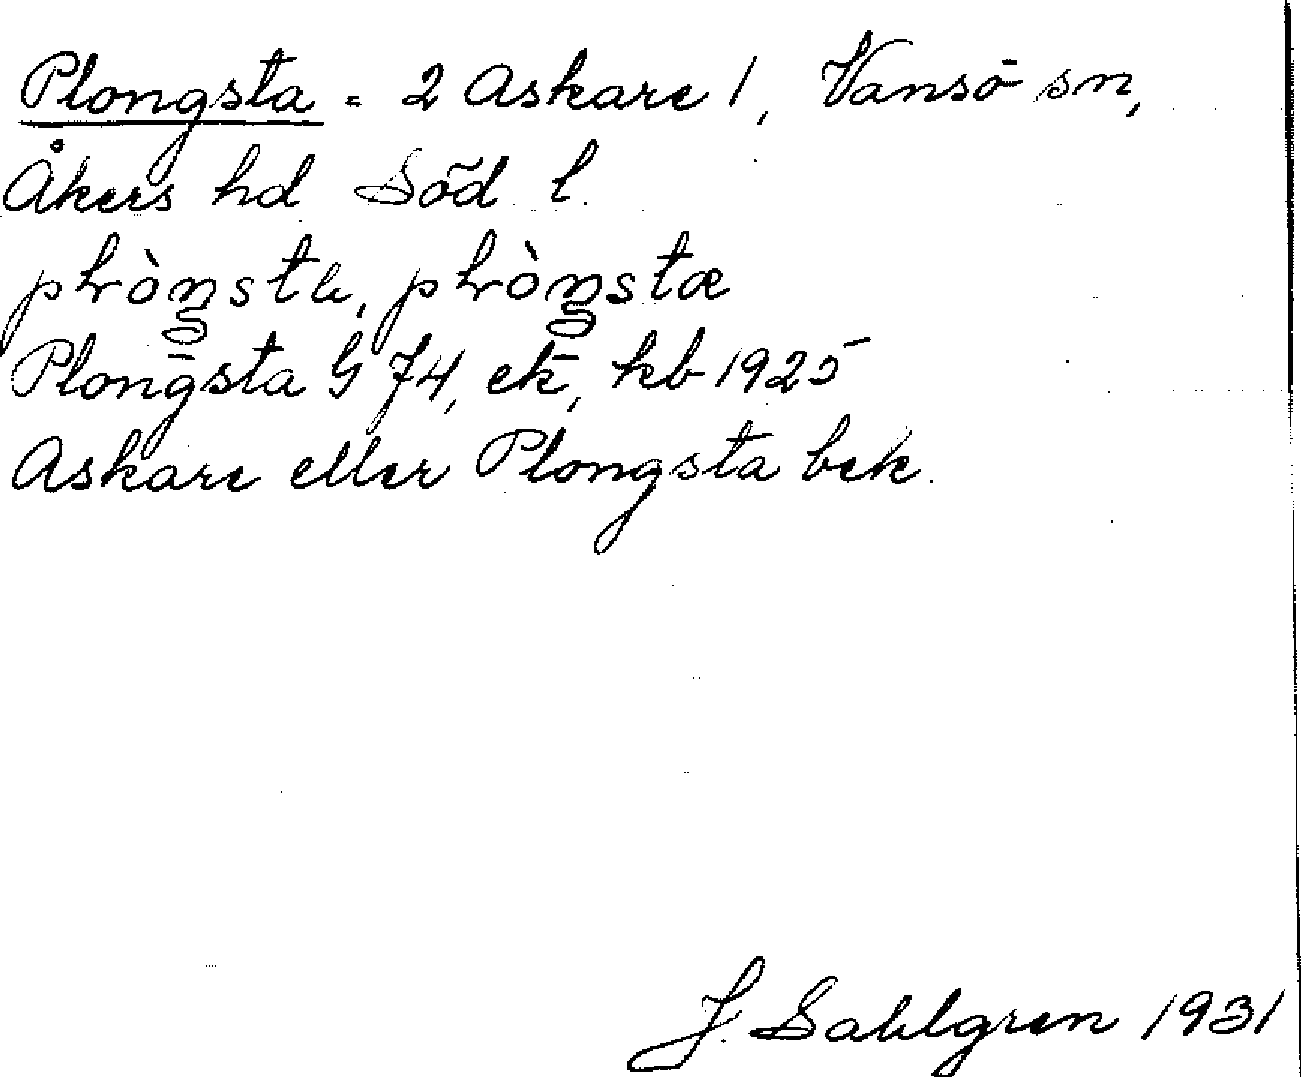 Plongsta = 2 Askare 1, Vansö sn,
Åkers hd Söd l.
Plongsta G 74, ek, kb 1925
Askare eller Plongsta bek.
J. Sahlgren 1931